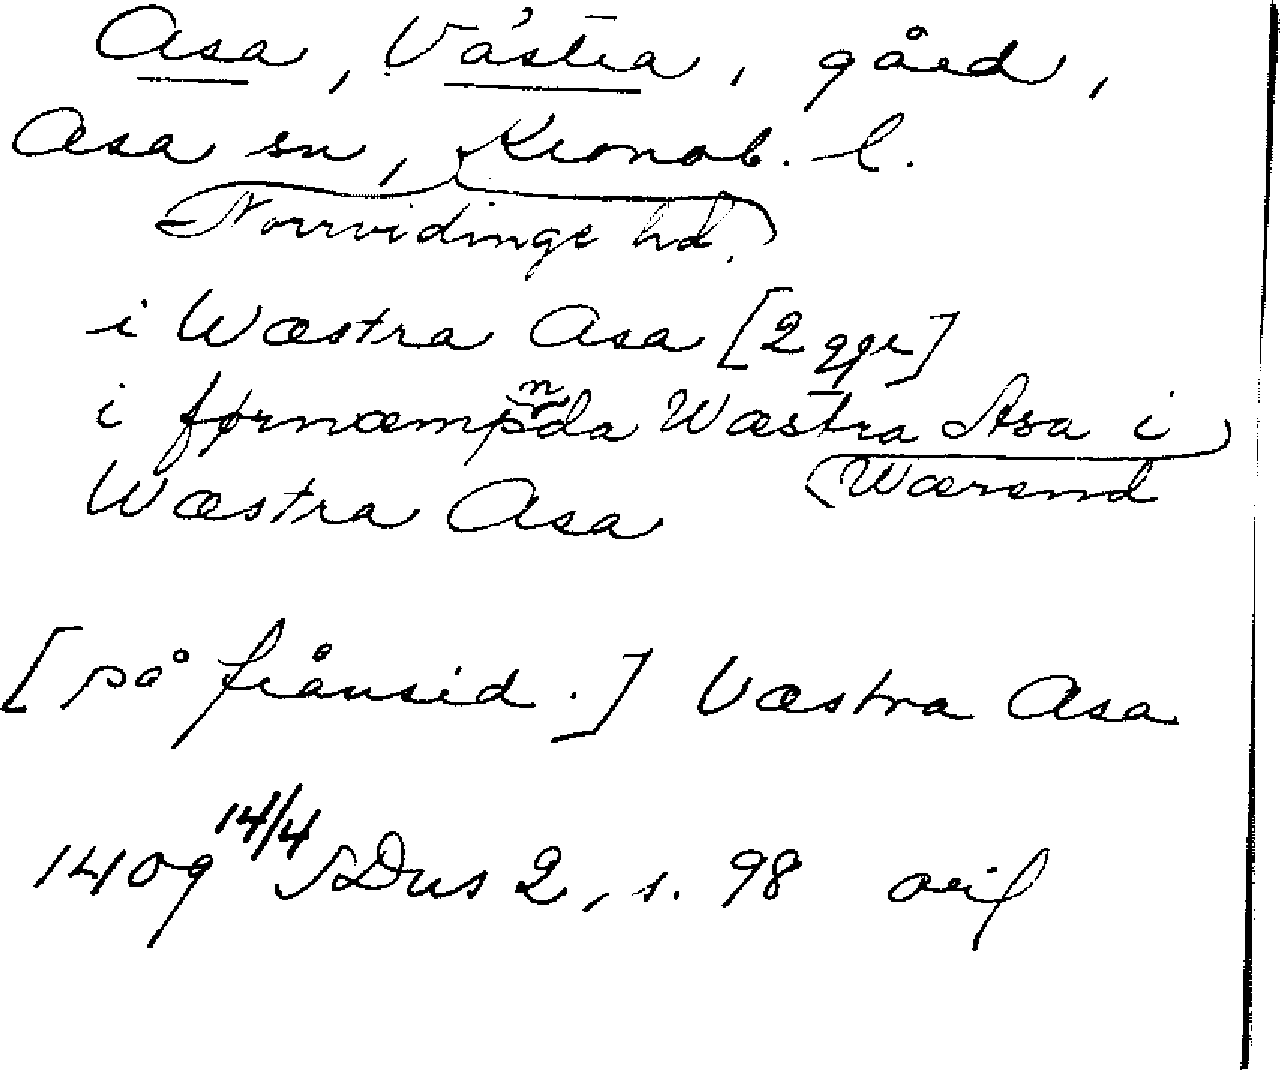 Asa, Västra, gård,
Asa sn, Kronob. l.
Norrvidinge hd.
i Wæstra Asa [2 ggr]
i førnæmpnda Wæstra Asa i
Wærend
Wæstra Asa
[på frånsid.] Væstra Asa
1409 14/4 SDns 2, s. 98 orig